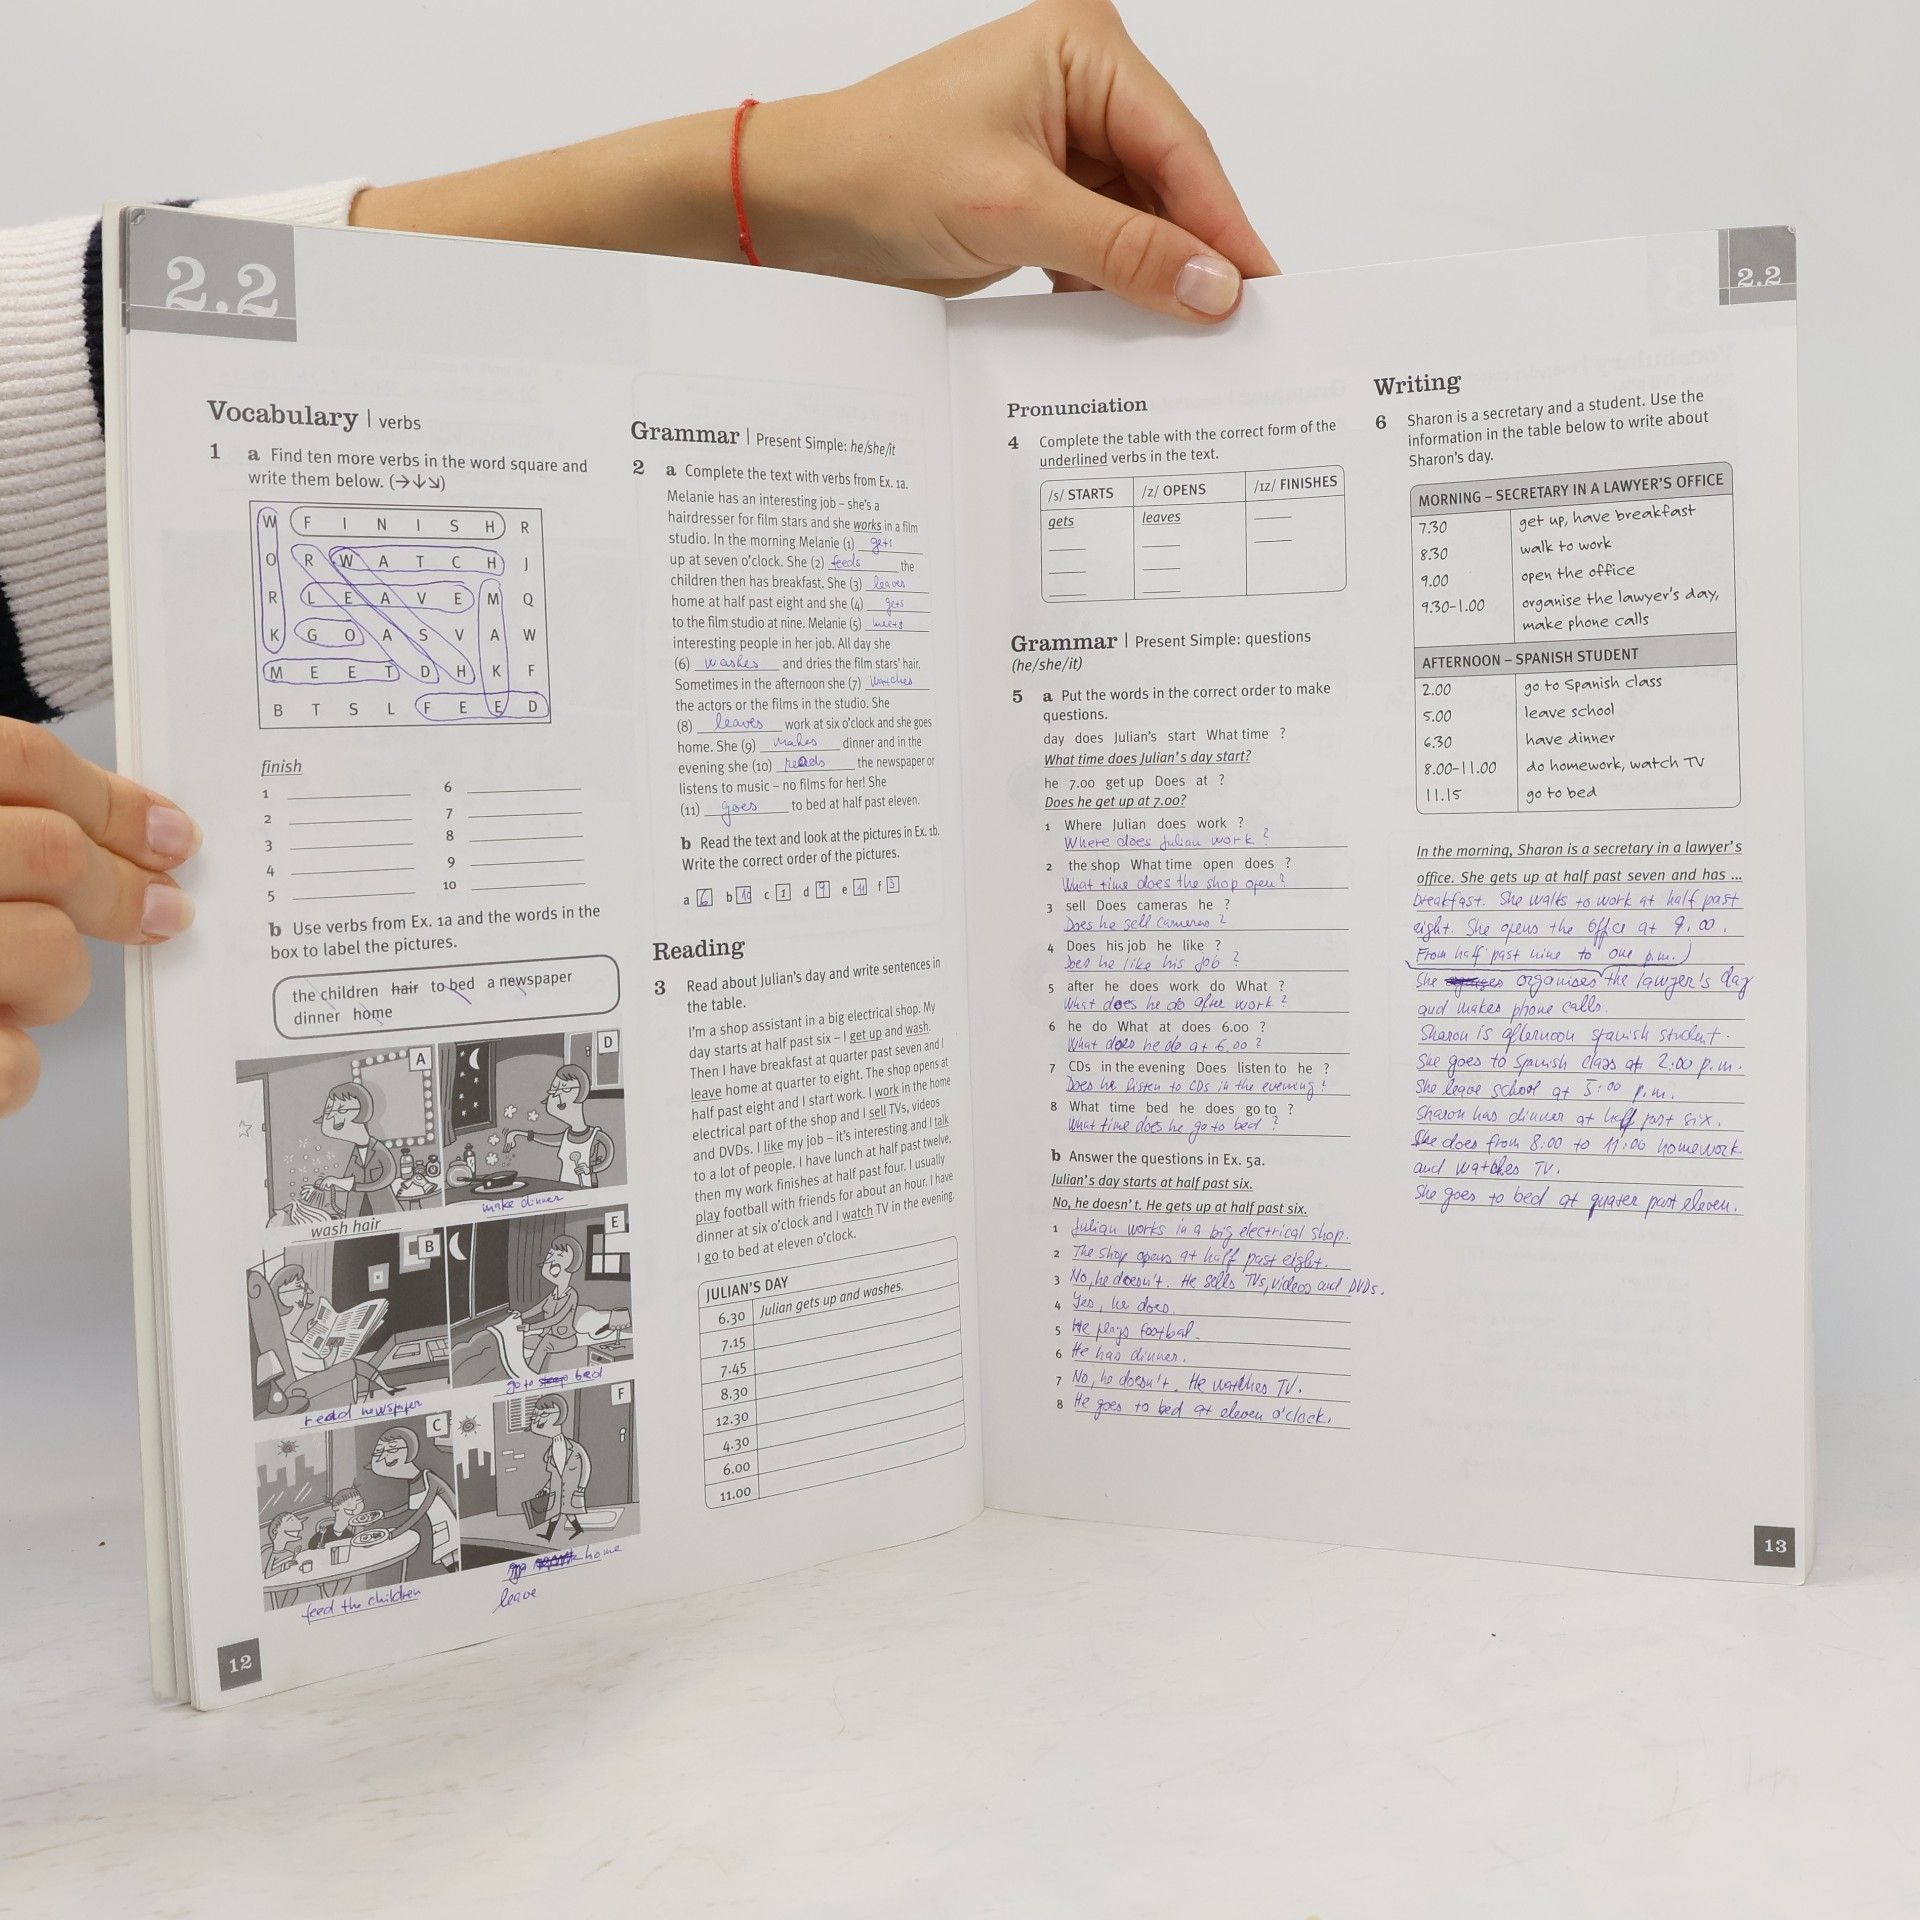 2.2
Vocabulary | verbs
1 a Find ten more verbs in the word square and
write them below. (→↓↘)
W F I N I S H R
O R W A T C H J
R L E A V E M Q
K G O A S V A W
M E E T D H K F
B T S L F E E D
finish
1 6
2 7
3 8
4 9
5 10
b Use verbs from Ex. 1a and the words in the
box to label the pictures.
the children hair to bed a newspaper
dinner home
A
wash hair
D
make dinner
B
read newspaper
E
go to bed
C
feed the children
F
home
leave
12
Grammar | Present Simple: he/she/it
2 a Complete the text with verbs from Ex. 1a.
Melanie has an interesting job – she's a
hairdresser for film stars and she works in a film
studio. In the morning Melanie (1) gets
up at seven o'clock. She (2) feeds the
children then has breakfast. She (3) leaves
home at half past eight and she (4) gets
to the film studio at nine. Melanie (5) meets
interesting people in her job. All day she
(6) washes and dries the film stars' hair.
Sometimes in the afternoon she (7) watches
the actors or the films in the studio. She
(8) leaves work at six o'clock and she goes
home. She (9) makes dinner and in the
evening she (10) reads the newspaper or
listens to music – no films for her! She
(11) goes to bed at half past eleven.
b Read the text and look at the pictures in Ex. 1b.
Write the correct order of the pictures.
a 6 b 10 c 1 d 9 e 11 f 3
Reading
3 Read about Julian's day and write sentences in
the table.
I'm a shop assistant in a big electrical shop. My
day starts at half past six – I get up and wash.
Then I have breakfast at quarter past seven and I
leave home at quarter to eight. The shop opens at
half past eight and I start work. I work in the home
electrical part of the shop and I sell TVs, videos
and DVDs. I like my job – it's interesting and I talk
to a lot of people. I have lunch at half past twelve,
then my work finishes at half past four. I usually
play football with friends for about an hour. I have
dinner at six o'clock and I watch TV in the evening.
I go to bed at eleven o'clock.
JULIAN'S DAY
6.30 Julian gets up and washes.
7.15
7.45
8.30
12.30
4.30
6.00
11.00
2.2
Pronunciation
4 Complete the table with the correct form of the
underlined verbs in the text.
/s/ STARTS /z/ OPENS /ɪz/ FINISHES
gets leaves
Grammar | Present Simple: questions
(he/she/it)
5 a Put the words in the correct order to make
questions.
day does Julian's start What time ?
What time does Julian's day start?
he 7.00 get up Does at ?
Does he get up at 7.00?
1 Where Julian does work ?
Where does Julian work ?
2 the shop What time open does ?
What time does the shop open?
3 sell Does cameras he ?
Does he sell cameras ?
4 Does his job he like ?
Does he like his job ?
5 after he does work do What ?
What does he do after work ?
6 he do What at does 6.00 ?
What does he do at 6.00 ?
7 CDs in the evening Does listen to he ?
Does he listen to CDs in the evening?
8 What time bed he does go to ?
What time does he go to bed ?
b Answer the questions in Ex. 5a.
Julian's day starts at half past six.
No, he doesn't. He gets up at half past six.
1 Julian works in a big electrical shop.
2 The shop opens at half past eight.
3 No, he doesn't. He sells TVs, videos and DVDs.
4 Yes, he does.
5 He plays footbal.
6 He has dinner.
7 No, he doesn't. He watches TV.
8 He goes to bed at eleven o'clock.
Writing
6 Sharon is a secretary and a student. Use the
information in the table below to write about
Sharon's day.
MORNING – SECRETARY IN A LAWYER'S OFFICE
7.30 get up, have breakfast
8.30 walk to work
9.00 open the office
9.30–1.00 organise the lawyer's day,
make phone calls
AFTERNOON – SPANISH STUDENT
2.00 go to Spanish class
5.00 leave school
6.30 have dinner
8.00–11.00 do homework, watch TV
11.15 go to bed
In the morning, Sharon is a secretary in a lawyer's
office. She gets up at half past seven and has ...
breakfast. She walks to work at half past
eight. She opens the office at 9.00.
From half past nine to one p.m.
She organises the lawyer's day
and makes phone calls.
Sharon is afternoon spanish student.
She goes to Spanish class at 2:00 p.m.
She leave school at 5:00 p.m.
Sharon has dinner at half past six.
She does from 8:00 to 11:00 homework
and watches TV.
She goes to bed at quater past eleven.
13